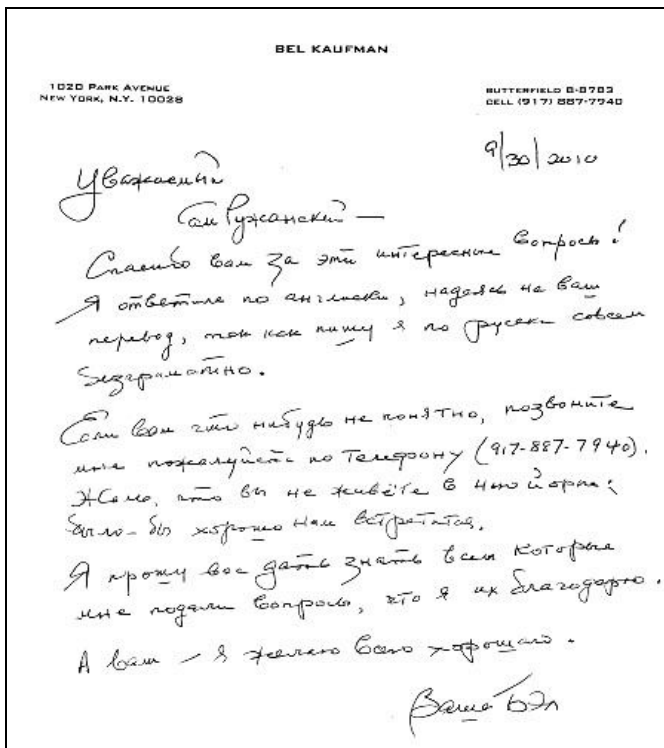 BEL KAUFMAN
1020 PARK AVENUE
NEW YORK, N.Y. 10028
BUTTERFIELD 8-8783
CELL (917) 887-7940
9/30/2010
Уважаемый
Сам Ружанский —
Спасибо вам за эти интересные вопросы!
Я ответила по англиски, надеясь на ваш
перевод, так как пишу я по русски совсем
безграмотно.
Если вам что нибудь не понятно, позвоните
мне пожалуйста по телефону (917-887-7940).
Жалко, что вы не живёте в Нью йорке:
было-бы хорошо нам встретится.
Я прошу вас дать знать всем которые
мне подали вопросы, что я их благодарю.
А вам – я желаю всего хорошаго.
Ваша Бэл